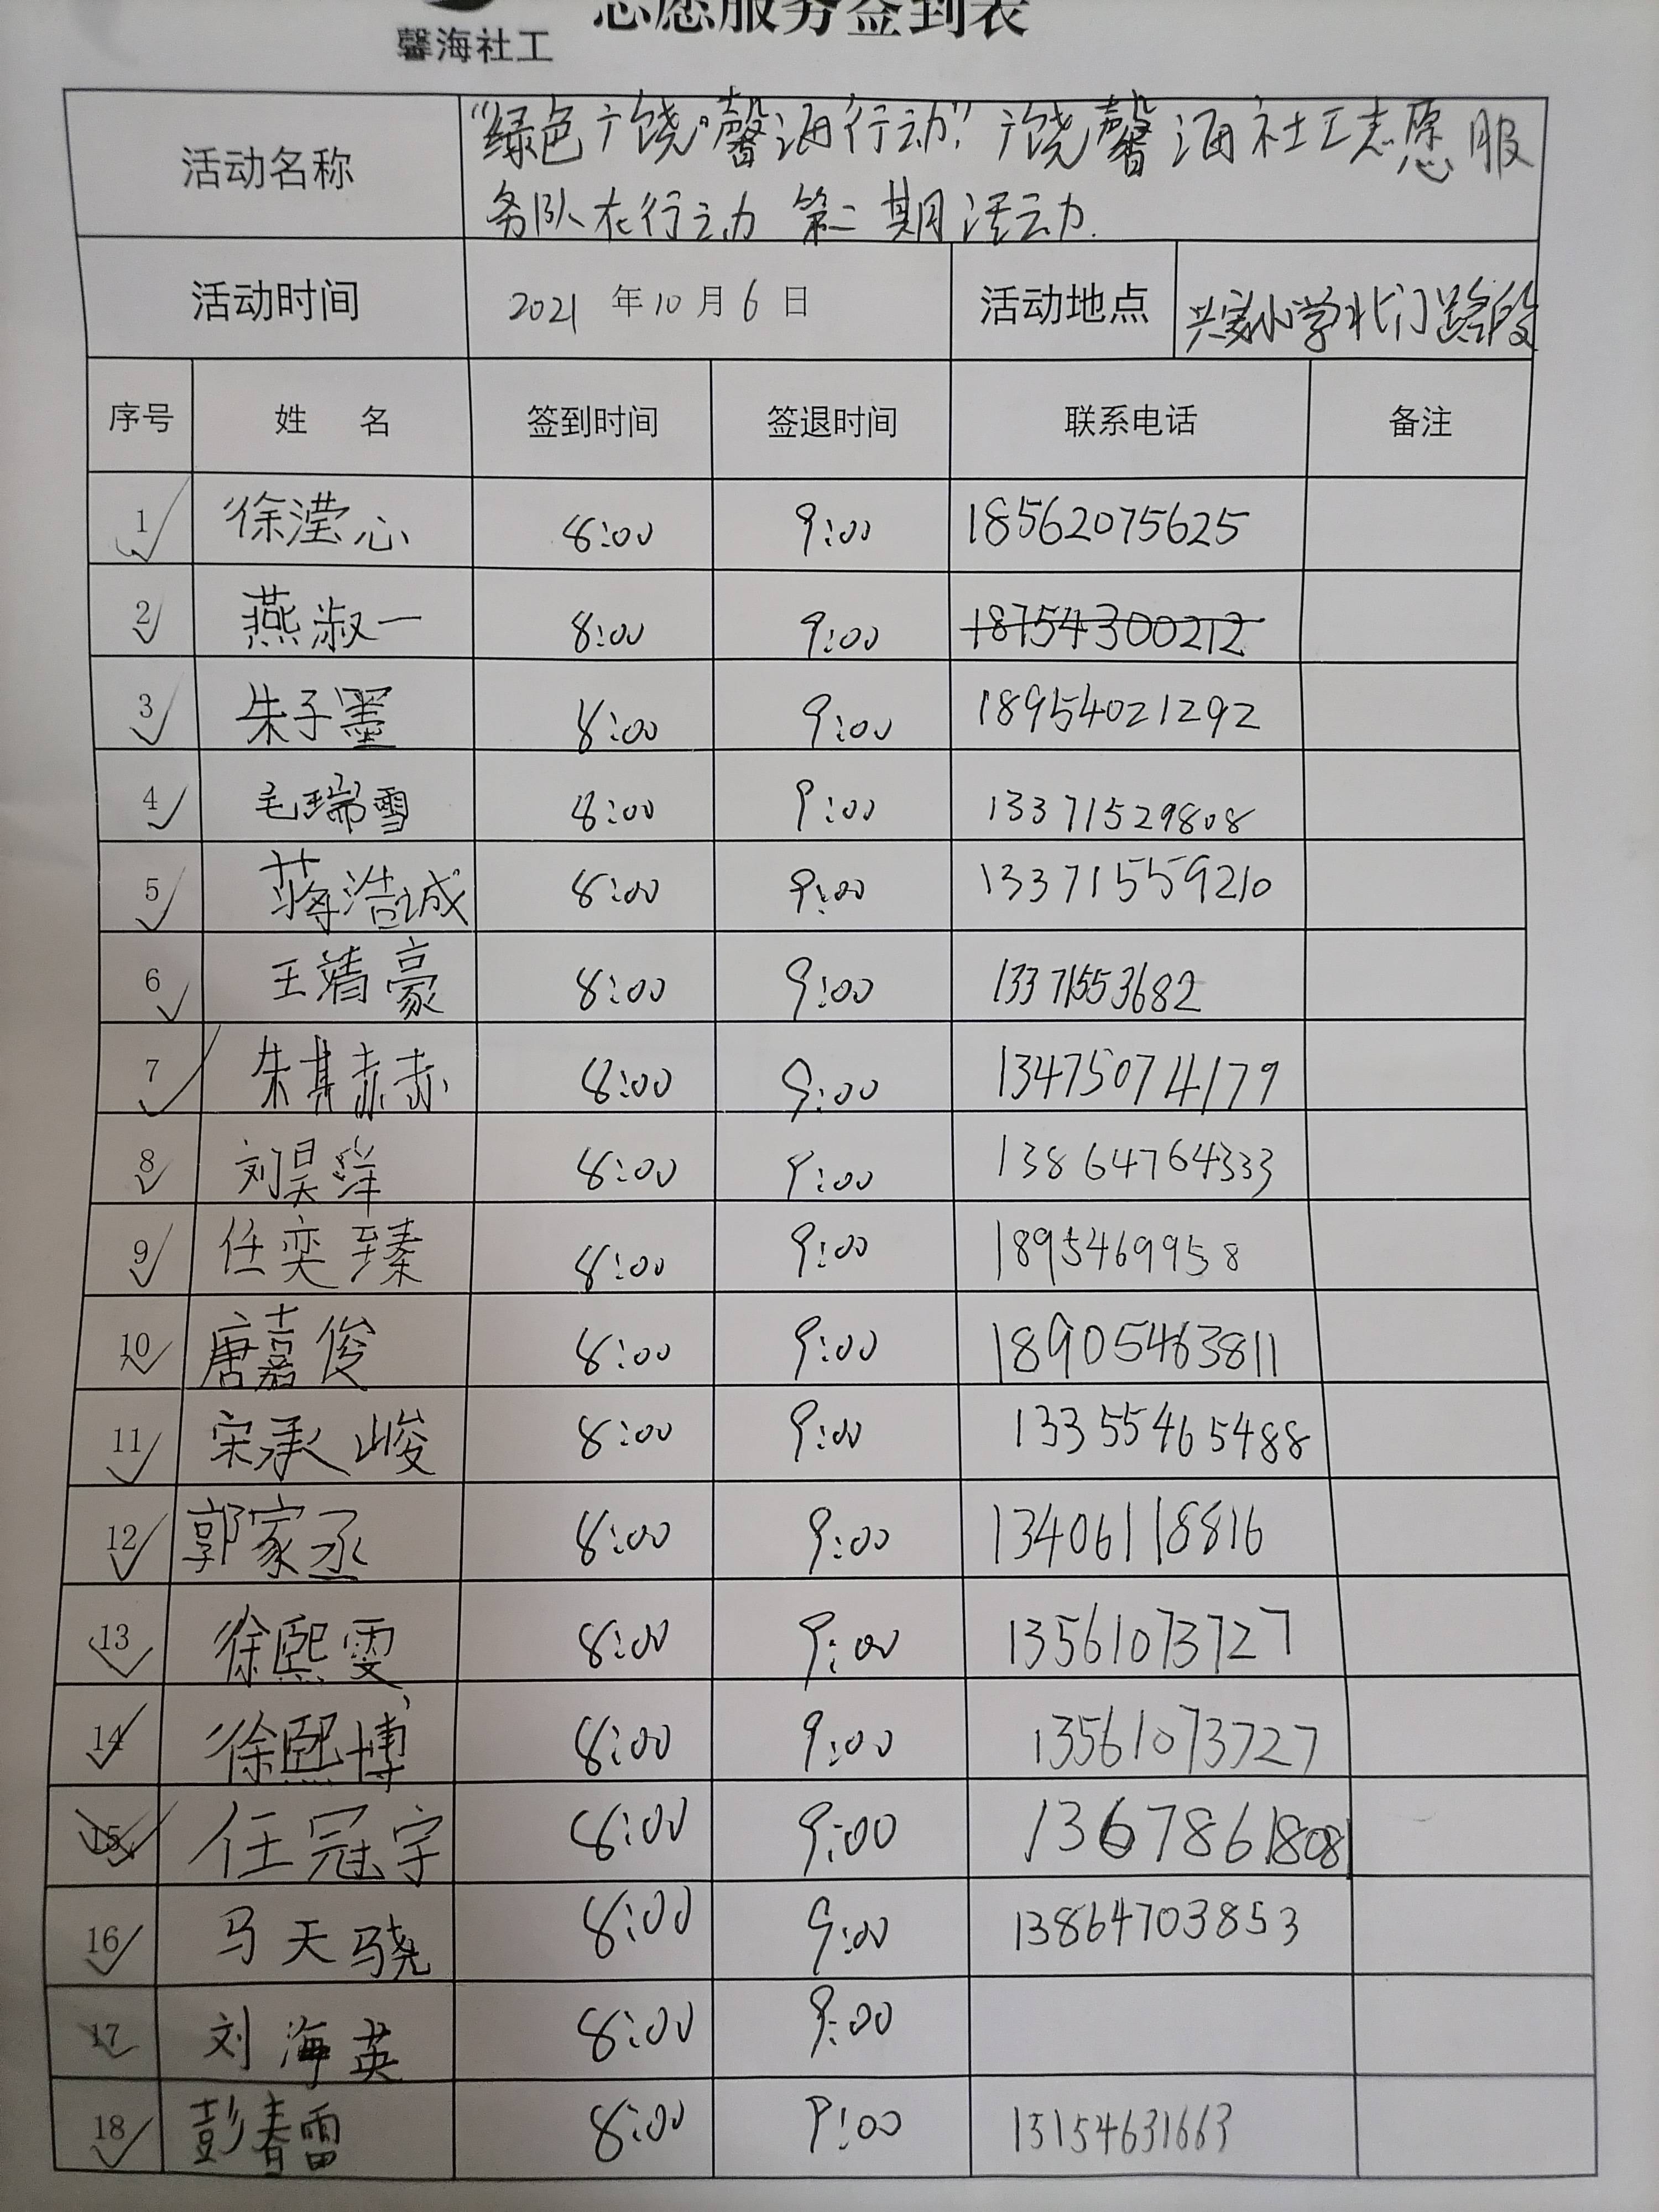 志愿服务签到表
馨海社工
活动名称 "绿色广饶·馨海行动"广饶馨海社工志愿服
务队在行动 第二期活动.
活动时间 2021年10月6日 活动地点 兴安小学北门路段
序号 姓 名 签到时间 签退时间 联系电话 备注
1 徐滢心 8:00 9:00 18562075625
2 燕淑一 8:00 9:00 18754300212
3 朱子墨 8:00 9:00 18954021292
4 毛瑞雪 8:00 9:00 13371529808
5 蒋浩诚 8:00 9:00 13371559210
6 王靖豪 8:00 9:00 13371553682
7 朱其赫 8:00 9:00 13475074179
8 刘昊洋 8:00 9:00 13864764333
9 任奕臻 8:00 9:00 1895469958
10 唐嘉俊 8:00 9:00 18905463811
11 宋承峻 8:00 9:00 13355465488
12 郭家丞 8:00 9:00 13406118816
13 徐熙雯 8:00 9:00 13561073727
14 徐熙博 8:00 9:00 13561073727
15 任冠宇 8:00 9:00 13678618081
16 马天骁 8:00 9:00 13864703853
17 刘海英 8:00 9:00
18 彭春雷 8:00 9:00 15154631663